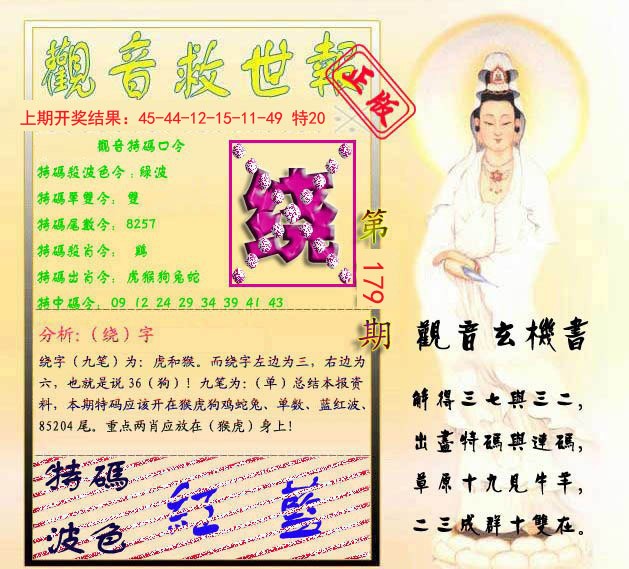 觀音救世報
正版
上期开奖结果：45-44-12-15-11-49 特20
觀音特碼口令
特碼殺波色令：綠波
特碼單雙令： 雙
特碼尾數令： 8257
特碼殺肖令： 鷄
特碼出肖令： 虎猴狗兔蛇
特中碼令： 09 12 24 29 34 39 41 43
绕
第
179
期
分析:（绕）字
绕字（九笔）为：虎和猴。而绕字左边为三，右边为
六，也就是说 36（狗）！九笔为：（单）总结本报资
料，本期特码应该开在猴虎狗鸡蛇兔、单数、蓝红波、
85204 尾。重点两肖应放在（猴虎）身上！
特碼
波色
紅 藍
觀音玄機書
解得三七與三二，
出盡特碼與連碼，
草原十九見牛羊，
二三成群十雙在。